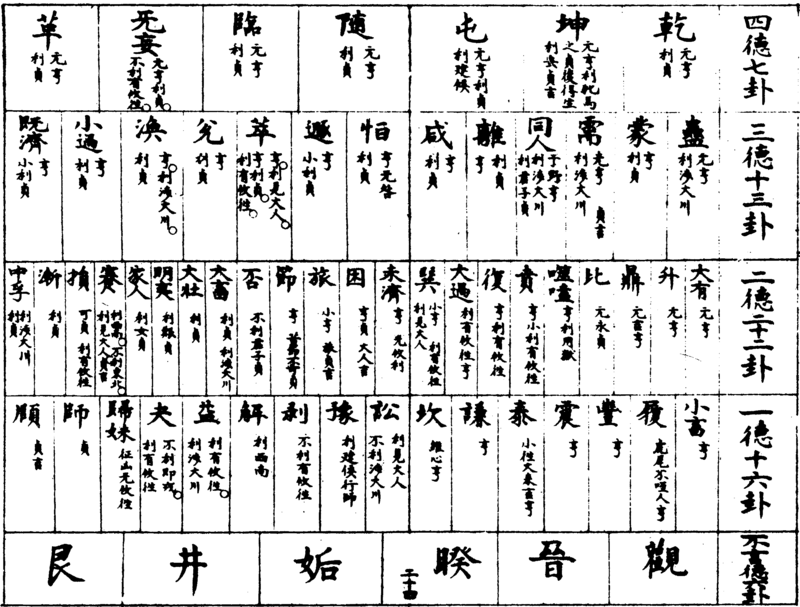 四德七卦
乾
元亨
利貞
坤
元亨利牝馬
之貞後得主
利安貞吉
屯
元亨利貞
利建候
隨
元亨
利貞
臨
元亨
利貞
无妄
元亨利貞
不利有攸往
革
元亨
利貞
三德十三卦
蠱
元亨
利涉大川
蒙
亨
利貞
需
光亨 貞吉
利涉大川
同人
于野亨
利涉大川
利君子貞
離
利貞
亨
咸
亨
利貞
恒
亨无咎
利貞
遯
亨
小利貞
萃
亨利見大人
亨利貞
利有攸往
兌
亨
利貞
渙
亨利涉大川
利貞
小過
亨
利貞
既濟
亨
小利貞
二德二十二卦
大有
元亨
升
元亨
鼎
元吉亨
比
元永貞
噬嗑
亨利用獄
賁
亨小利有攸往
復
亨利有攸往
大過
利有攸往亨
巽
小亨利有攸往
利見大人
未濟
亨无攸利
困
亨貞大人吉
旅
小亨旅貞吉
節
亨苦節不可貞
否
不利君子貞
大畜
利貞利涉大川
大壯
利貞
明夷
利艱貞
家人
利女貞
蹇
利西南不利東北
利見大人貞吉
頤
可貞利有攸往
漸
利貞
中孚
利涉大川
利貞
一德十六卦
小畜
亨
履
虎尾不咥人亨
豐
亨
震
亨
泰
小往大來吉亨
謙
亨
坎
維心亨
訟
利見大人
不利涉大川
豫
利建侯行師
剝
不利有攸往
解
利西南
益
利有攸往
利涉大川
夬
不利即戎
利有攸往
歸妹
征凶无攸往
師
貞
頤
貞吉
不言德卦
觀
晉
睽
二十四
姤
井
艮